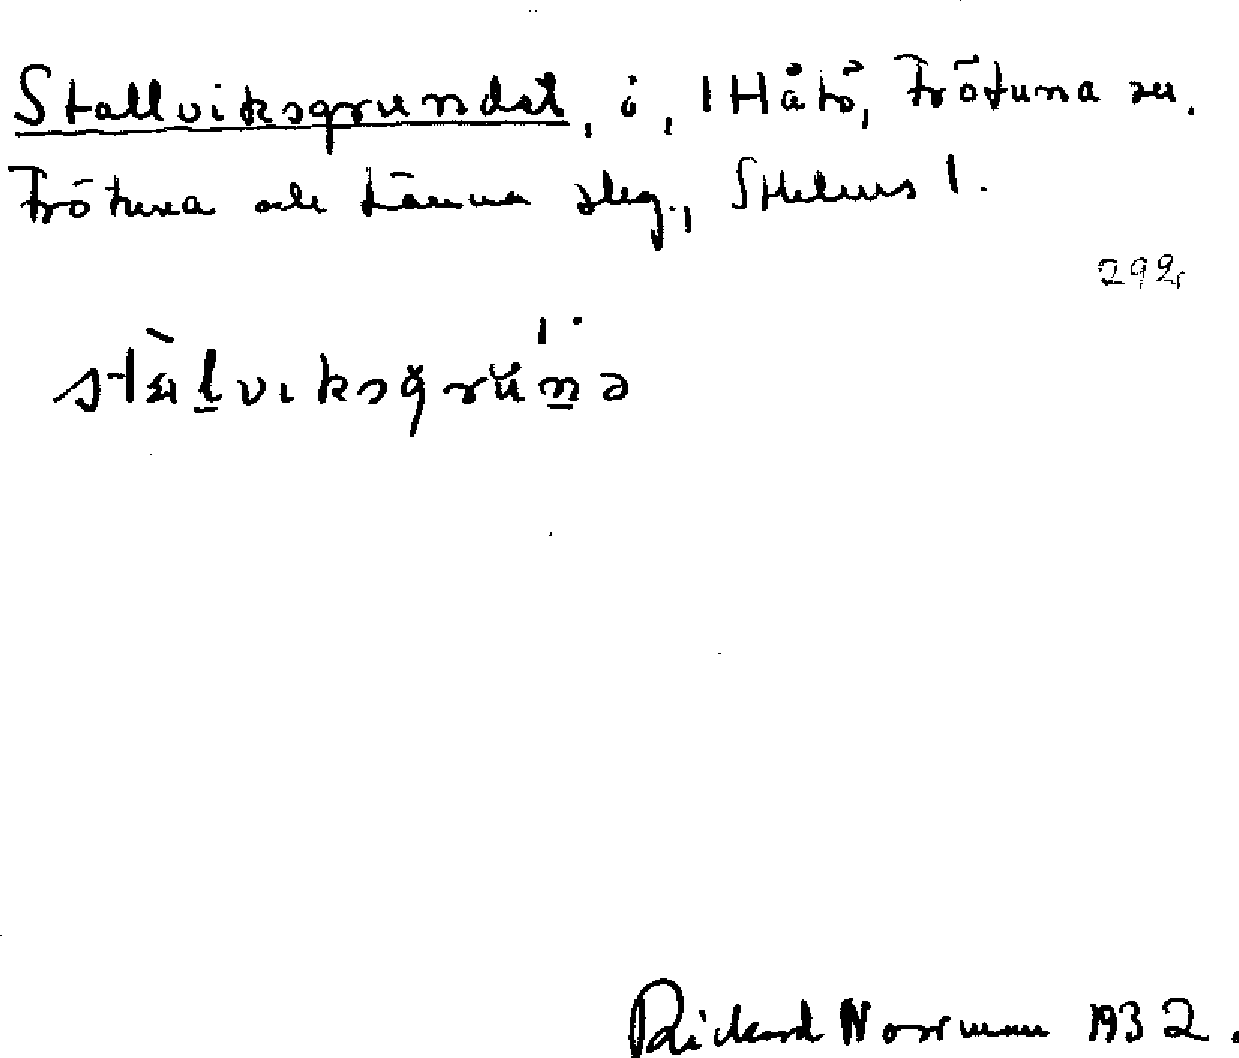 Stallviksgrundet, i, 1 Håtö, Frötuna sn.
Frötuna och Länna slg., Sthlms l.
292
Rickard Norrman 1932.